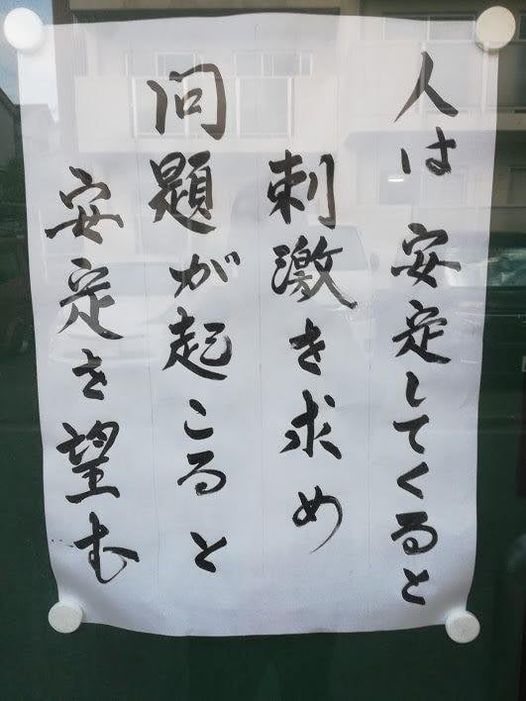 人は 安定してくると
刺激を求め
問題が起こると
安定を望む